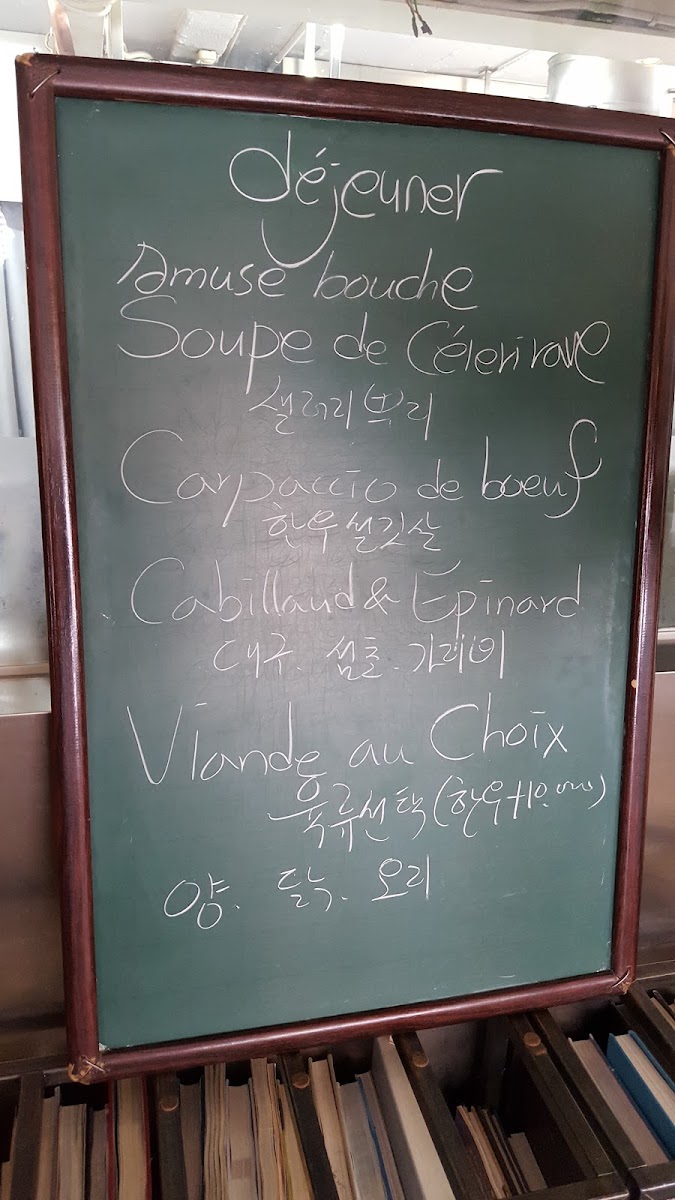 déjeuner
Amuse bouche
Soupe de Célerirave
샐러리 뿌리
Carpaccio de boeuf
한우설깃살
Cabillaud & Épinard
대구. 섬초. 가리비
Viande au Choix
육류선택(한우+10.000)
양. 닭. 오리